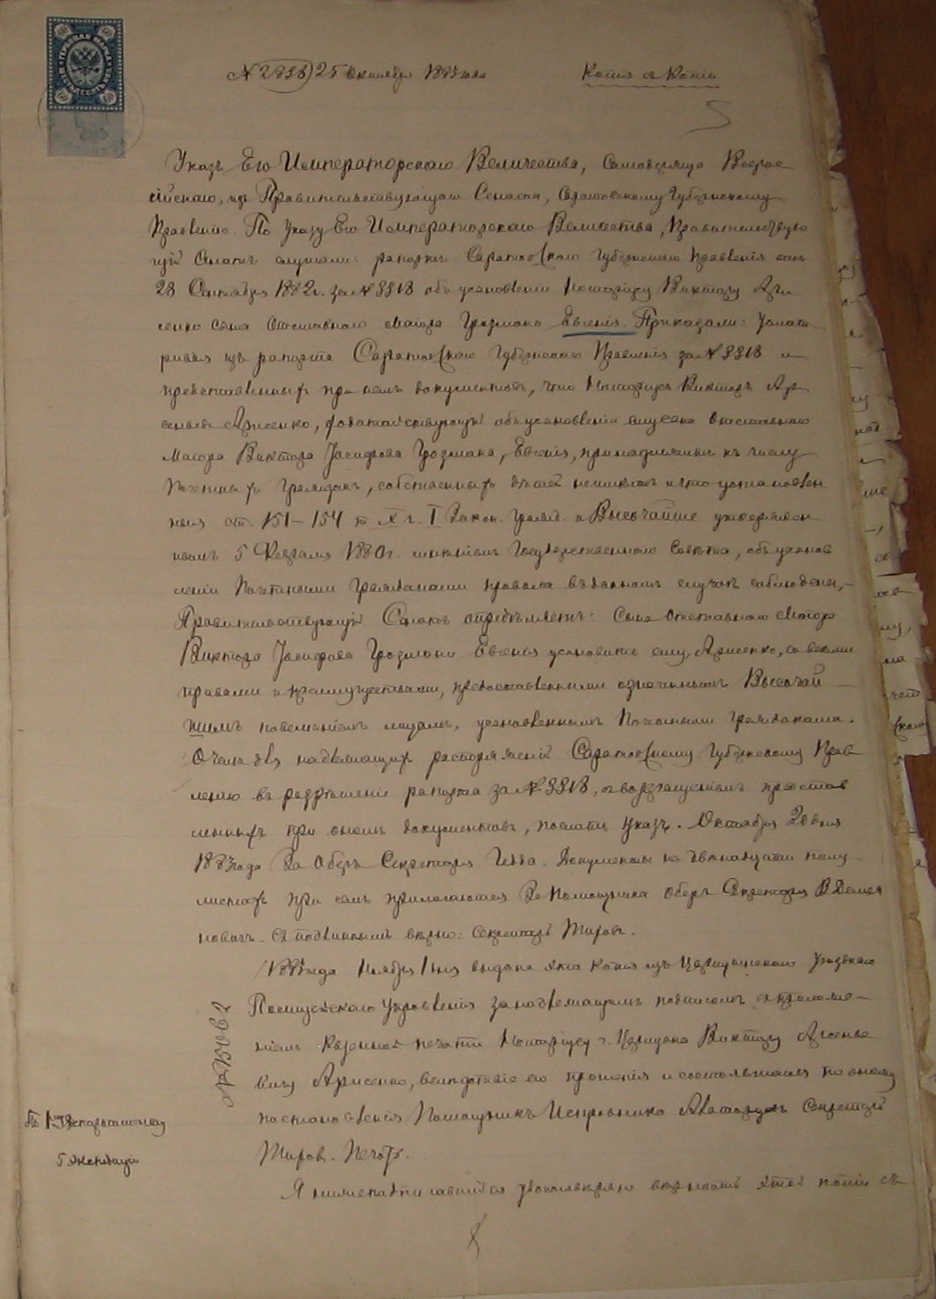 25 Октября 188 года
Копія съ Копіи
Указъ Его Императорскаго Величества, Самодержца Всерос
сійскаго, изъ Правительствующаго Сената, Саратовскому Губернскому
Правленію. По Указу Его Императорскаго Величества, Правительствую
щій Сенатъ слушали: рапортъ Саратовскаго Губернскаго Правленія отъ
28 Сентября 1882 г. за № 8818 объ усыновленіи Нотаріусу Виктору Ари
сенко сына Отставного Маіора Грозмана Евгенія. Приказали: Усмат
ривая изъ рапорта Саратовскаго Губернскаго Правленія за № 8818 и
представленныхъ при немъ документовъ, что Нотаріусъ Викторъ Ар
сеньевъ Арисенко, ходатайствующій объ усыновленіи отставного
Маіора Виктора Іосифова Грозмана, Евгенія, принадлежитъ къ числу
Почетныхъ Гражданъ, собственныхъ дѣтей не имѣетъ и что установлен
ныя ст. 151-154 т. X ч. I Закон. Гражд. и Высочайше утвержден
нымъ 5 Февраля 1880 г. мнѣніемъ Государственнаго Совѣта, объ усынов
леніи Почетными Гражданами правила въ данномъ случаѣ соблюдены,
Правительствующій Сенатъ опредѣляетъ: Сына Отставного Маіора
Виктора Іосифова Грозмана Евгенія усыновить ему, Арисенко, со всѣми
правами и преимуществами, предоставленными означеннымъ Высочай
шимъ повелѣніемъ лицамъ, усыновленнымъ Почетными Гражданами.
О чемъ для надлежащихъ распоряженій Саратовскому Губернскому Прав
ленію въ разрѣшеніе рапорта за № 8818, съ возвращеніемъ представ
ленныхъ при ономъ документовъ, послать Указъ. Октября 20 дня
188 года За Оберъ Секретаря Документы на двѣнадцати полу
листахъ при семъ прилагаются За Помощника Оберъ Секретаря
Съ подлиннымъ вѣрно: Секретарь Жировъ.
188 года Ноября дня выдана эта копія изъ Царицынскаго Уѣзднаго
Полицейскаго Управленія за надлежащимъ подписомъ и приложе
ніемъ Казенной печати Нотаріусу г. Царицына Виктору Арсенье
вичу Арисенко, вслѣдствіе его прошенія и состоявшагося по оному
постановленія Помощникъ Исправника Секретарь
Жировъ. Печать.
Я нижеподписавшійся удостовѣряю вѣрность этой копіи съ